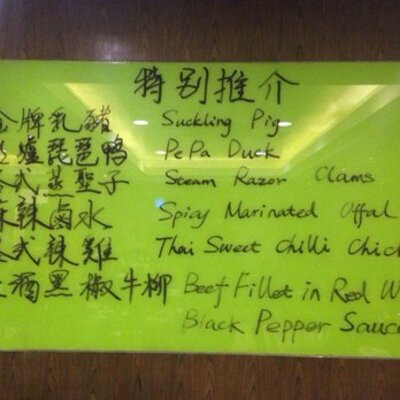 特别推介
金牌乳豬 Suckling Pig
爐琵琶鴨 PePa Duck
泰式蒸聖子 Steam Razor Clams
麻辣鹵水 Spicy Marinated Offal
泰式辣雞 Thai Sweet Chilli
酒黑椒牛柳 Beef Fillet in Red
Black Pepper Sauce